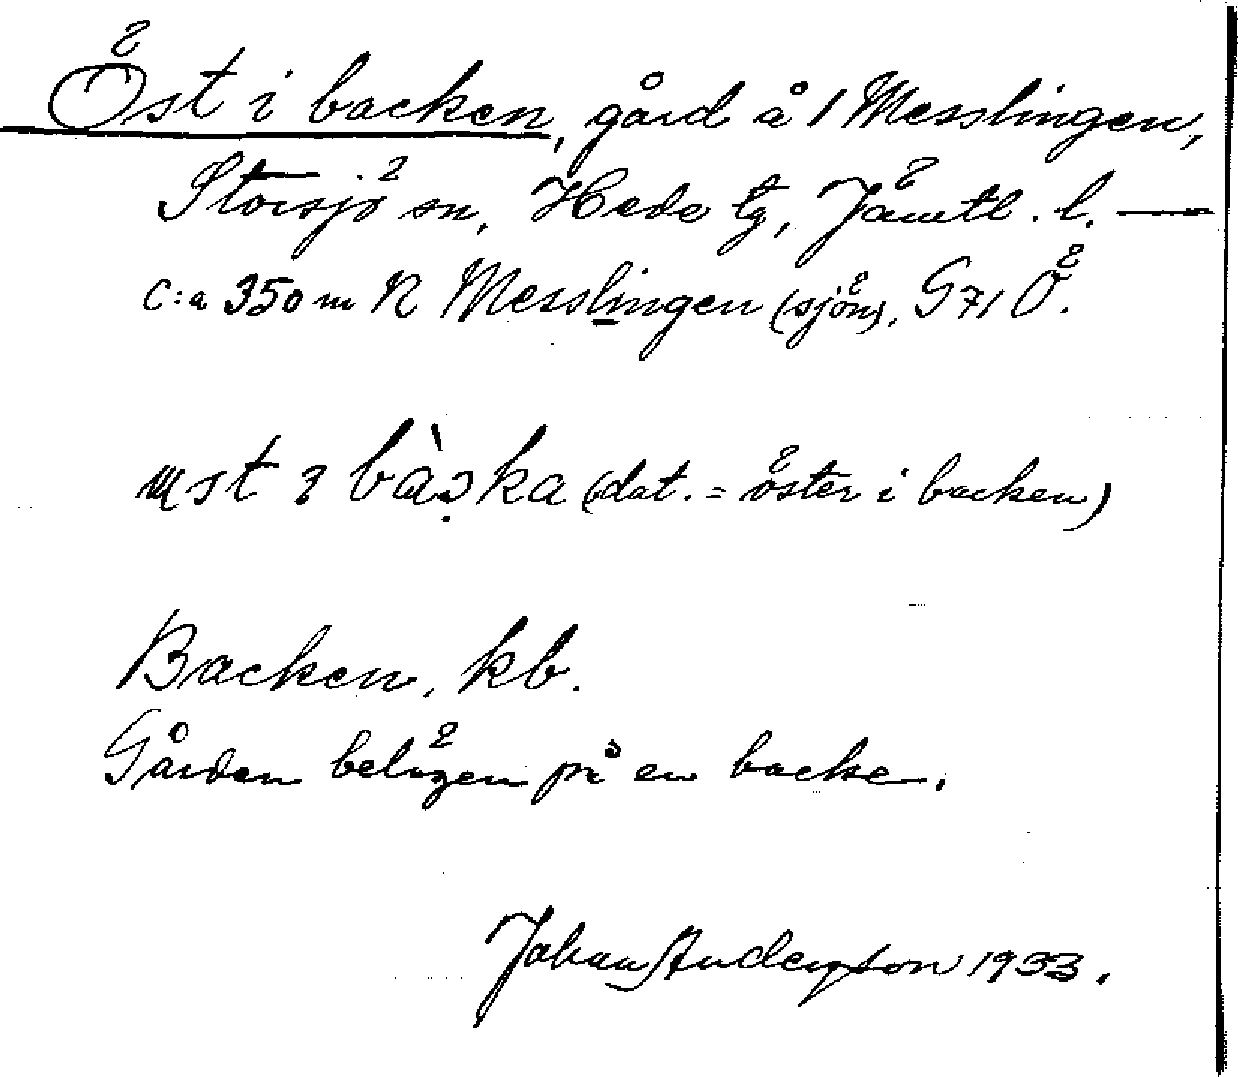 Öst i backen, gård å 1 Messlingen,
Storsjö sn, Hede tg, Jämtl. l. —
c:a 350 m N Messlingen (sjön), G 71 Ö.
st i bàska (dat. = öster i backen)
Backen, kb.
Gården belägen på en backe.
Johan Anderson 1933.